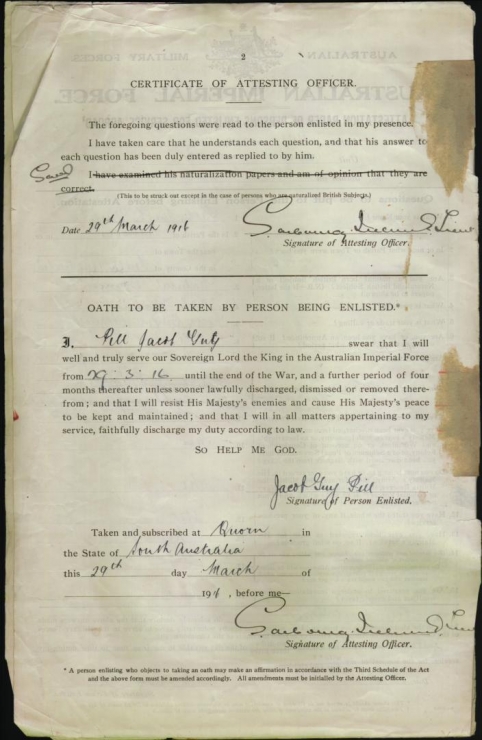 2
CERTIFICATE OF ATTESTING OFFICER.
The foregoing questions were read to the person enlisted in my presence.
I have taken care that he understands each question, and that his answer to
each question has been duly entered as replied to by him.
I have examined his naturalization papers and am of opinion that they are
correct.
(This to be struck out except in the case of persons who are naturalized British Subjects.)
Date 29th March 1916
Signature of Attesting Officer.
OATH TO BE TAKEN BY PERSON BEING ENLISTED.*
I, Pill Jacob Guy swear that I will
well and truly serve our Sovereign Lord the King in the Australian Imperial Force
from 29.3.16 until the end of the War, and a further period of four
months thereafter unless sooner lawfully discharged, dismissed or removed there-
from; and that I will resist His Majesty's enemies and cause His Majesty's peace
to be kept and maintained; and that I will in all matters appertaining to my
service, faithfully discharge my duty according to law.
SO HELP ME GOD.
Jacob Guy Pill
Signature of Person Enlisted.
Taken and subscribed at Quorn in
the State of South Australia
this 29th day March of
191 , before me—
Signature of Attesting Officer.
* A person enlisting who objects to taking an oath may make an affirmation in accordance with the Third Schedule of the Act
and the above form must be amended accordingly. All amendments must be initialled by the Attesting Officer.